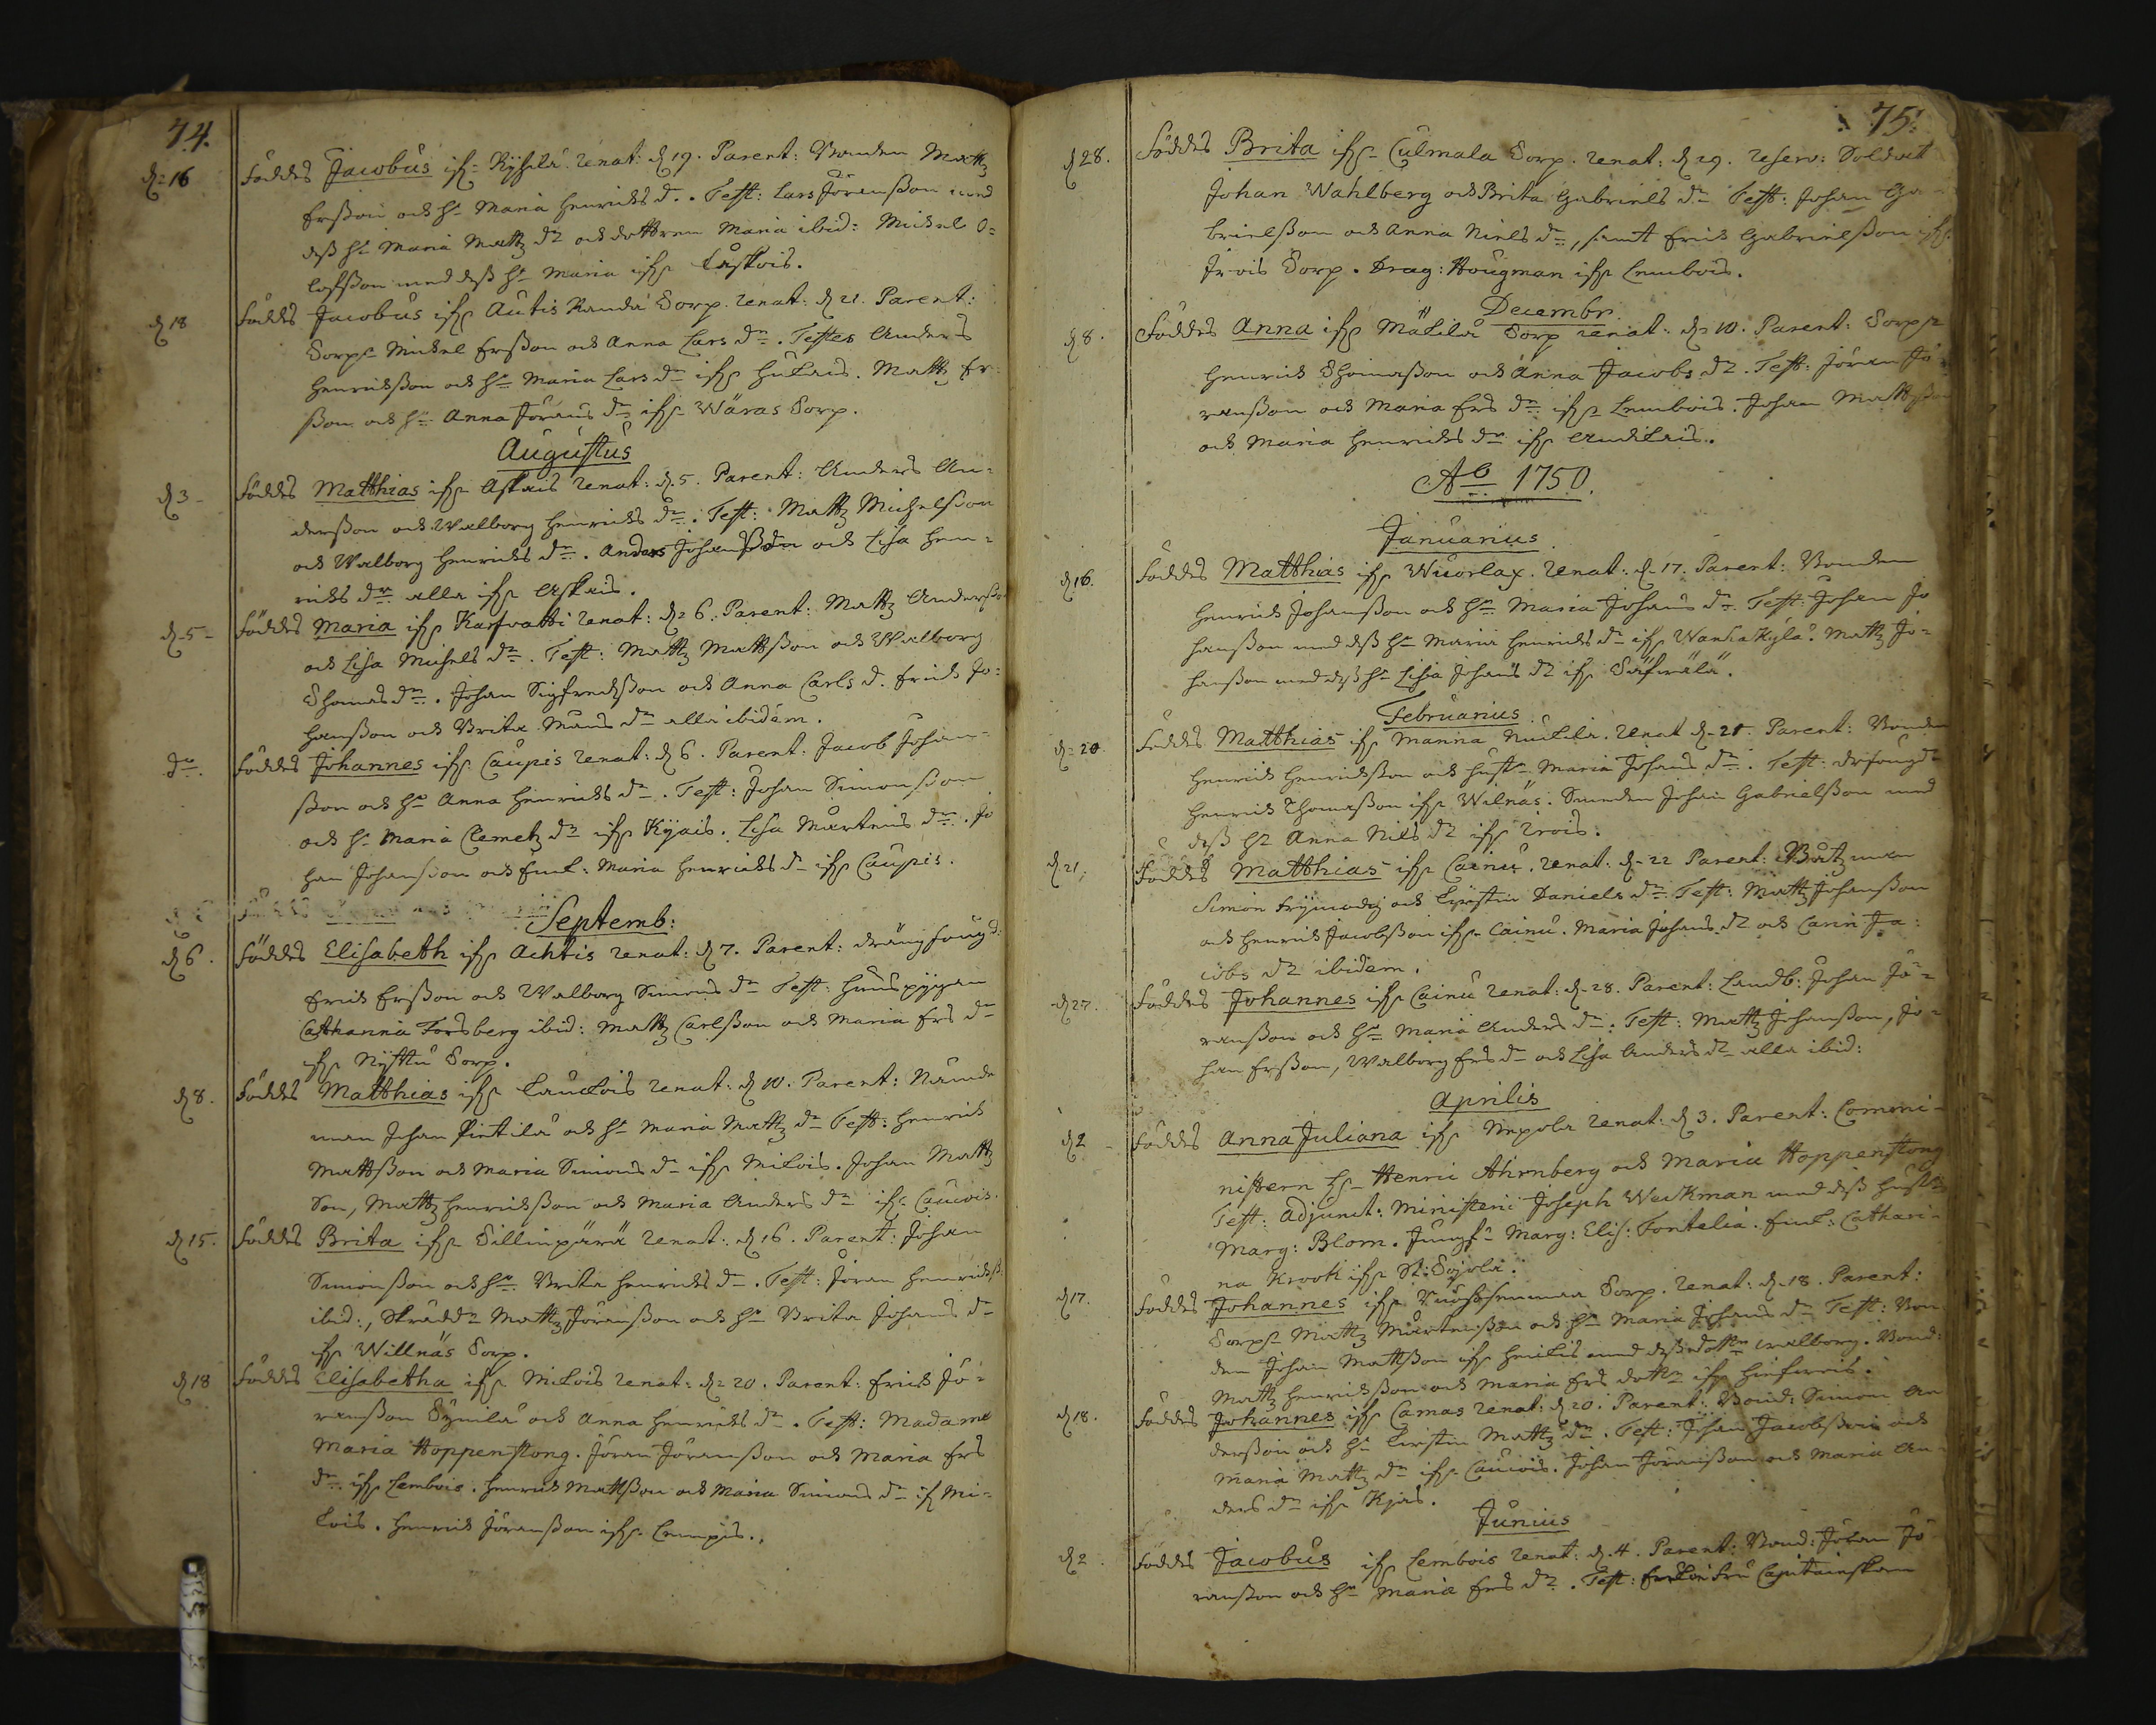 74.
d. 16 Föddes Jacobus ifr. Kyhsilä renat: d. 19. Parent: Bonden Mattz
Ersson och h. Maria Henrichs d. Test: Lars Jöransson med
dess h. Maria Mattz dr och dottren Maria ibid: Michel O=
lofsson med dess h. Maria ifr.
d 18 Föddes Jacobus ifr. Autis Randa Torp. renat: d 21. Parent:
Torpr Michel Ersson och Anna Lars dr. Testes Anders
Henricksson och h. Maria Lars dr ifr. Mattz Er=
sson och h. Anna Jörans dr ifr. Wäras Torp.
Augustus
d 3 Föddes Matthias ifr. Askais renat: d. 5. Parent: Anders An=
dersson och Walborg Henrichs dr. Test: Mattz Michelsson
och Walborg Henrichs dr. Anders Johansson och Lisa Hen=
richs dr alla ifr. Askais.
d. 5 Föddes Maria ifr. Karfvatti renat: d. 6. Parent: Mattz Andersson
och Lisa Michels dr. Test: Mattz Mattsson och Walborg
Thomas dr. Johan Sigfredsson och Anna Carls d. Erich Jo=
hansson och Brita Måns dr alla ibidem.
do. Föddes Johannes ifr. Caupis renat: d 6. Parent: Jacob Johan=
sson och h. Anna Henrichs dr. Test: Johan Simonsson
och h. Maria Clemetz dr ifr. Kyais. Lisa Mårtens dr. Jo
han Johansson och Enk: Maria Henrichs dr ifr. Caupis.
Septemb:
d 6. Föddes Elisabeth ifr. Achtis renat: d 7. Parent: drängfougd:
Erich Ersson och Walborg Simons dr Test: Huuspigan
Catharina Forsberg ibid: Mattz Carlsson och Maria Ers dr
ifr. Nysttu Torp.
d 8. Föddes Matthias ifr. Lauckois renat: d 10. Parent: Nämde
man Johan Pietilä och h. Maria Mattz dr Test: Henrich
Mattsson och Maria Simons dr ifr. Mikois. Johan Mattz
Son, Mattz Henricksson och Maria Anders dr ifr. Caucois.
d 15. Föddes Brita ifr. Sillinpärä renat: d 16. Parent: Johan
Simonsson och h. Brita Henrichs dr. Test: Jöran Henrichss:
ibid:, Skräddr Mattz Jöransson och h. Brita Johans dr
ifr. Willnäs Torp.
d 18 Föddes Elisabetha ifr. Mikois renat: d. 20. Parent: Erich Jö=
ransson och Anna Henrichs dr. Test: Madame
Maria Hoppenstong. Jöran Jöransson och Maria Ers
dr ifr. Lembois. Henrich Mattsson och Maria Simons dr if. Mi=
kois. Henrich Jöransson ifr. Lempis.
75.
d 28. Föddes Brita ifr. Culmala Torp. renat: d 29. reserv: Soldat
Johan Wahlberg och Brita Gabriels dr Test: Johan Ga=
brielsson och Anna Niels dr, samt Erich Gabrielsson ifr.
Irois Torp. Drag: Hougman ifr. Lembois.
Decembr.
d 8. Föddes Anna ifr. Mäkilä Torp renat: d 10. Parent: Torpr
Henrich Thomasson och Anna Jacobs dr. Test: Jöran Jö=
ransson och Maria Ers dr ifr. Lembois. Johan Mattsson
och Maria Henrichs dr ifr.
Ao 1750.
Januarius
d 16. Föddes Matthias ifr. Wuorlax. renat: d. 17. Parent: Bonden
Henrich Johansson och h. Maria Johans dr. Test: Johan Jo
hansson med dess h. Maria Henrichs dr ifr. WanhaKylä. Mattz Jo=
hansson med dess h. Lisa Johans dr ifr.
Februarius
d. 20 Föddes Matthias ifr. Manna Nuckila. renat d. 21. Parent: Bonden
Henrich Henricksson och hustr. Maria Johans dr. Test:
Henrich Thomasson ifr. Wilnäs. Johan Gabrielsson med
dess hr Anna Niels dr ifr. Irois.
d 21. Föddes Matthias ifr. Cainu. renat: d. 22 Parent: Båtzman
Simon Frymodig och Kirstin Daniels dr Test: Mattz Johansson
och Henrich Jacobsson ifr. Cainu. Maria Johans dr och Carin Ja=
cobs dr ibidem.
d 27. Föddes Johannes ifr. Cainu renat: d. 28. Parent: Landb: Johan Jö=
ransson och h. Maria Anders dr. Test: Mattz Johansson, Jo=
han Ersson, Walborg Ers dr och Lisa Anders dr alla ibid:
Aprilis
d 2 Föddes Anna Juliana ifr. Nepola renat: d 3. Parent: Commi=
nistern Hr. Henric Ahrnberg och Maria Hoppenstong
Test: Adjunct: Ministerii Joseph Workman med dess hustr
Marg: Blom. Jungf. Marg: Elis: Fortelia. Enk: Cathari=
na Krook ifr. St:
d 17. Föddes Johannes ifr. Torp. renat: d. 18. Parent:
Torpr Mattz Mårtensson och h. Maria Johans dr Test: Bon
den Johan Mattsson ifr. med dess dottr Walborg. Bond:
Mattz Henricksson och Maria Ers dottr ifr.
d 18. Föddes Johannes ifr. Camas renat: d 20. Parent: Bond: Simon An
dersson och h. Kirstin Mattz dr. Test: Johan Jacobsson och
Maria Mattz dr ifr. Caucois. Johan Jöransson och Maria An=
ders dr ifr. Kyais.
Junius
d 2. Föddes Jacobus ifr. Lembois renat: d. 4. Parent: Bond: Jöran Jö
ransson och h. Maria Ers dr. Test: Fru Capitainskan